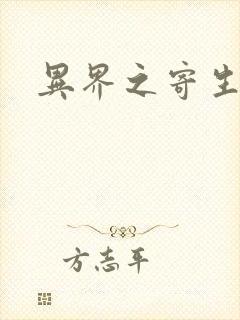 異界之寄生
方志平